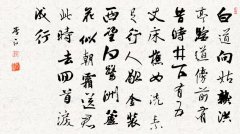 白道向姑熟洪
亭臨道傍前有
昔時井下有五
丈床樵女洗素
足行人歇金裝
西望白鷺洲蘆
花似朝霜送君
此時去回首淚
成行